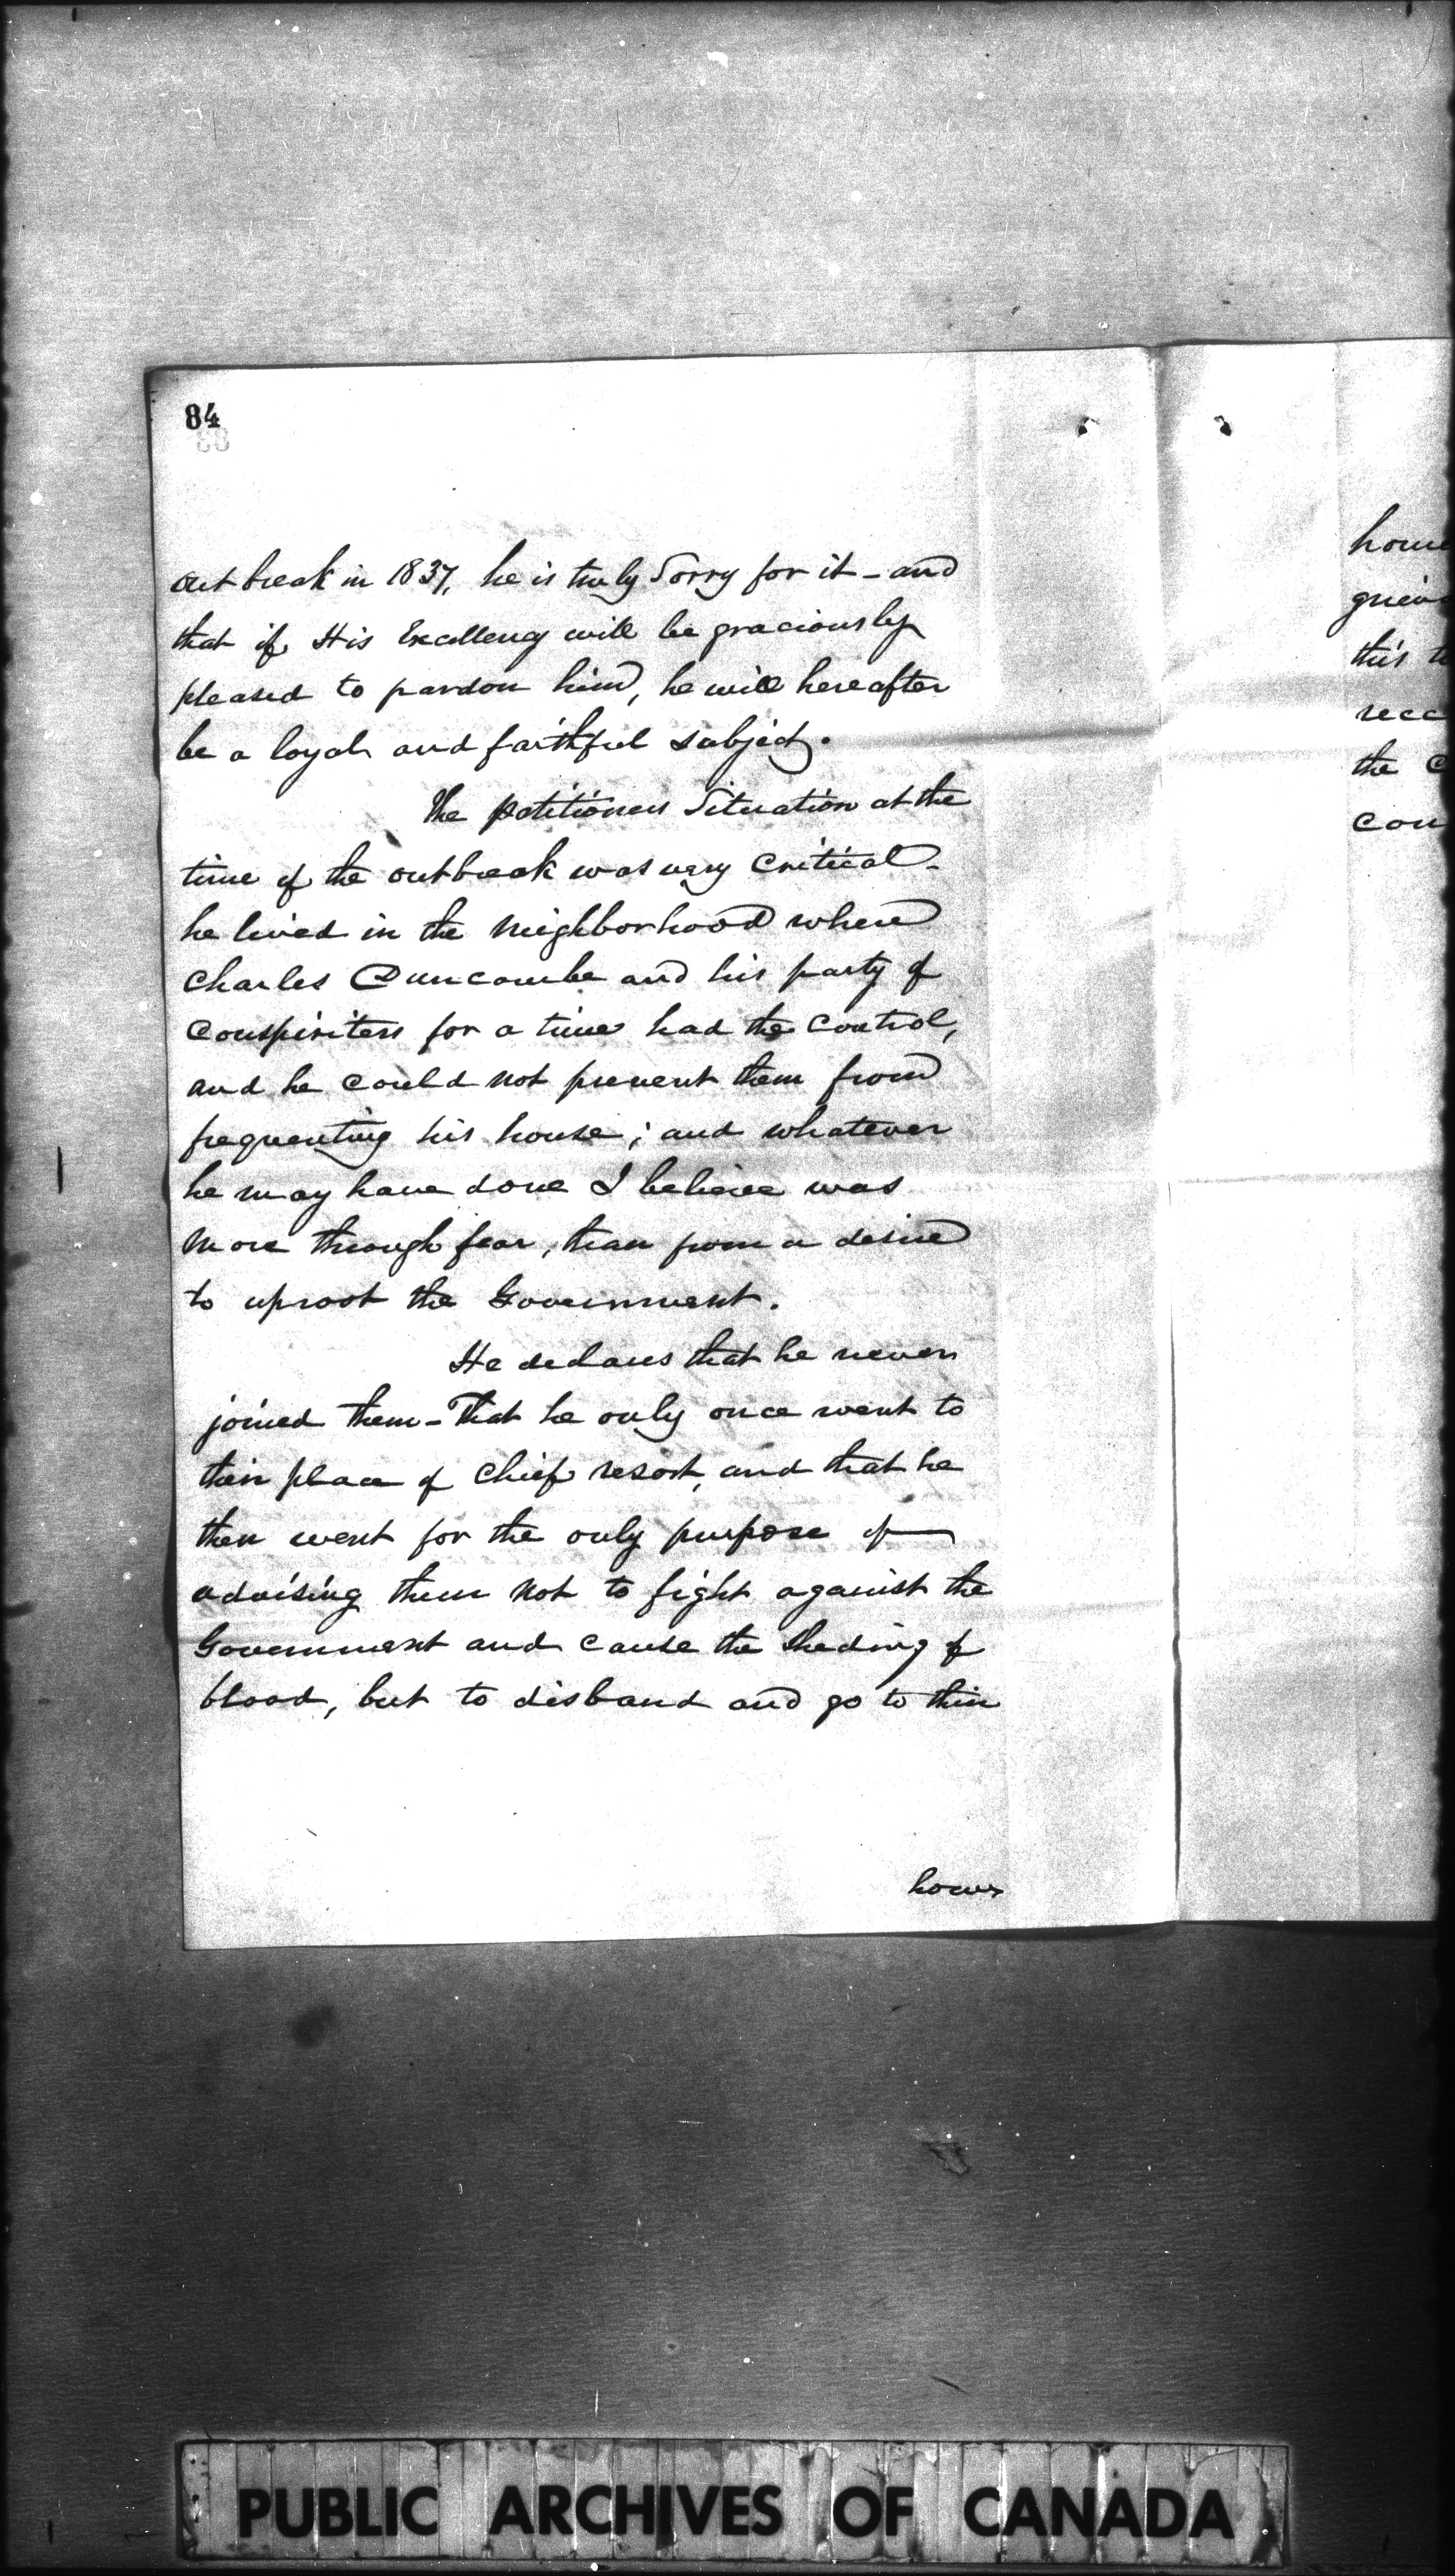 84
outbreak in 1837, he is truly Sorry for it - and
that if His Excellency will be graciously
pleased to pardon him, he will hereafter
be a loyal and faithful subject.
The petitioners Situation at the
time of the outbreak was very Critical -
he lived in the neighborhood where
Charles Duncombe and his party of
Conspiriters for a time had the Control,
and he could not prevent them from
frequenting his house; and whatever
he may have done I believe was
more through fear, than from a desire
to uproot the Government.
He declares that he never
joined them - That he only once went to
their place of Chief resort, and that he
then went for the only purpose of
advising them not to fight against the
Government and cause the Sheding of
blood, but to disband and go to their
homes
home
griev
this
rece
the
con
PUBLIC ARCHIVES OF CANADA